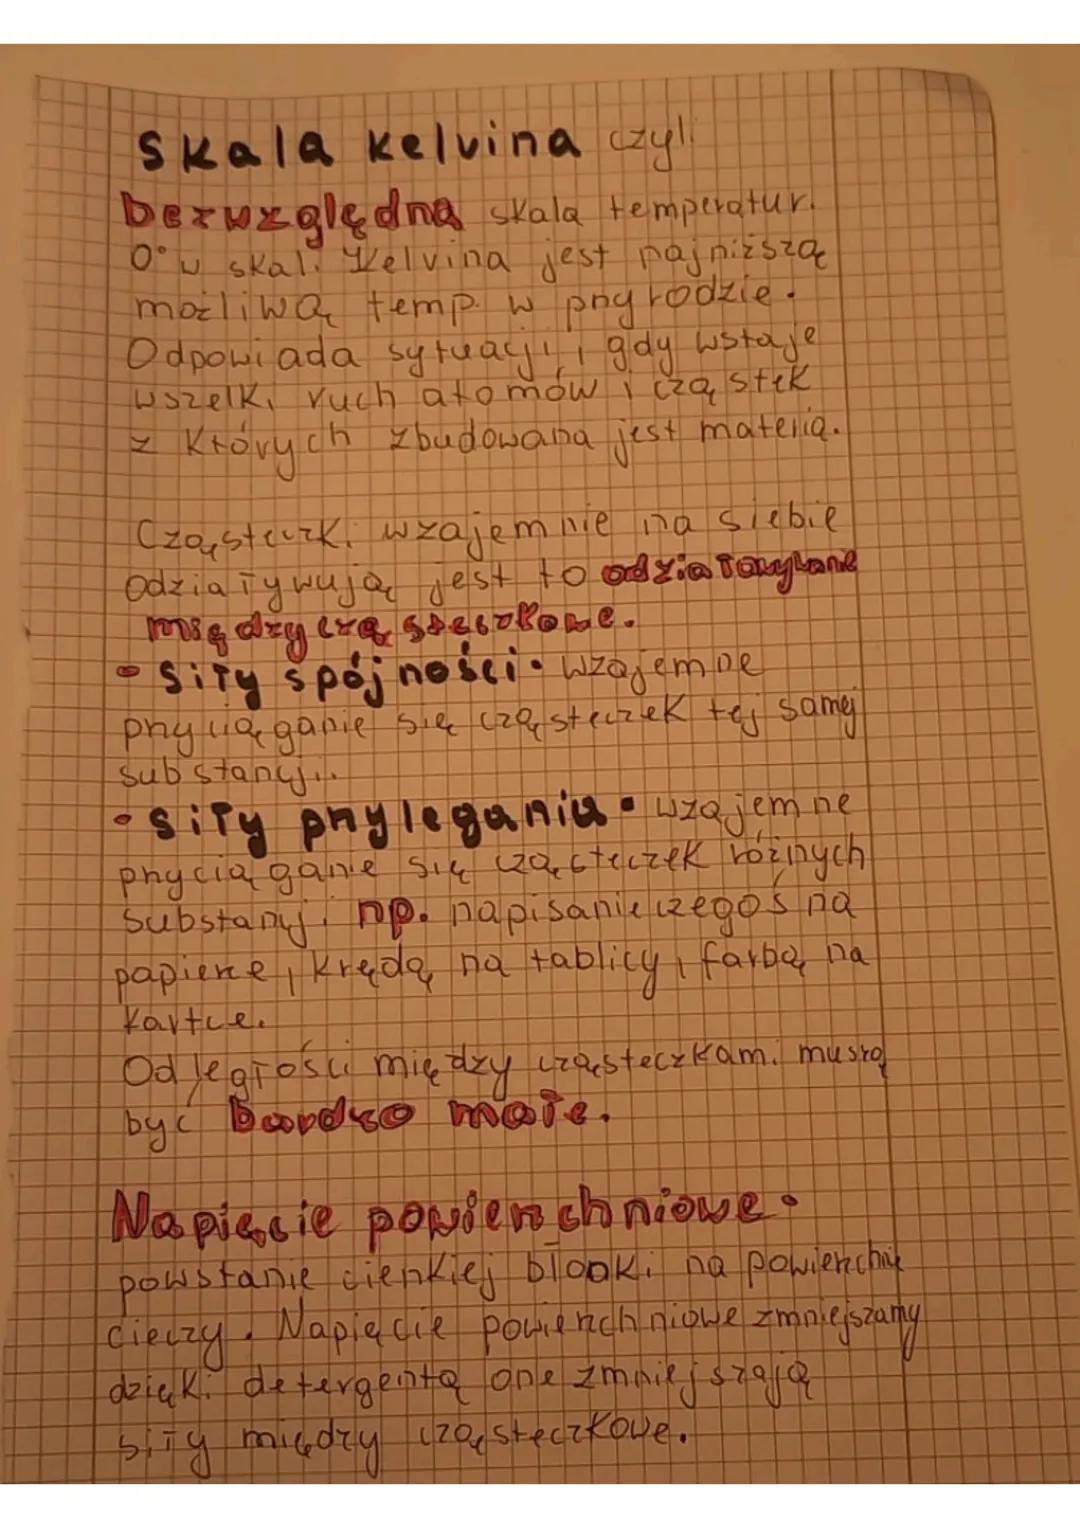 Skala Kelvina czyli
bezwzględna skala temperatur.
0° w skali Kelvina jest najniższą
możliwą temp. w przyrodzie.
Odpowiada sytuacji, gdy wstaje
wszelki ruch atomów i cząstek
z których zbudowana jest materia.
Cząsteczki wzajemnie na siebie
odziaływują jest to odziaływane
między cząsteczkowe.
• Siły spójności • wzajemne
przyciąganie się cząsteczek tej samej
substancji.
• Siły przylegania • wzajemne
przyciąganie się cząsteczek różnych
substancji np. napisanie czegoś na
papierze, kredą na tablicy, farbą na
kartce.
Odległości między cząsteczkami muszą
być bardzo małe.
Napięcie powierzchniowe •
powstanie cienkiej błonki na powierzchnie
cieczy. Napięcie powierzchniowe zmniejszamy
dzięki detergentą one zmniejszają
siły między cząsteczkowe.